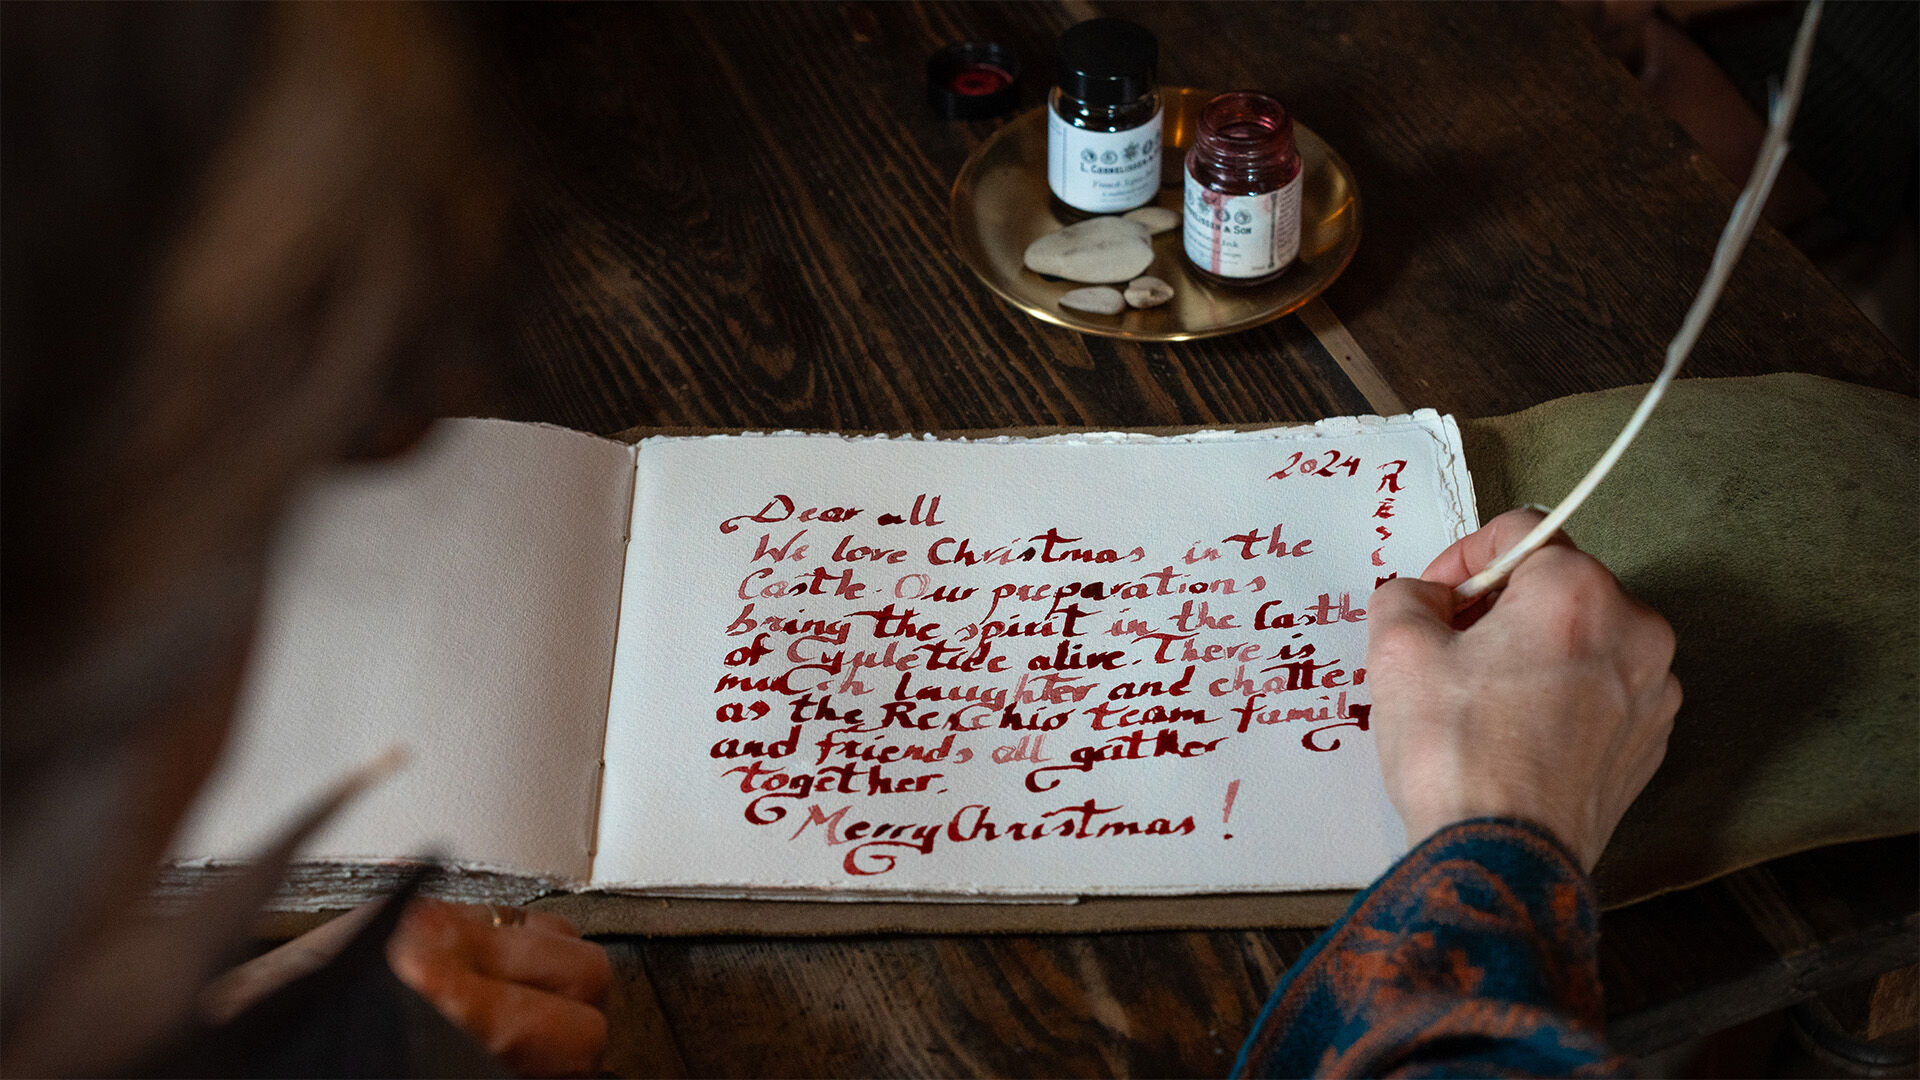 L. CORNELISSEN
NELISSEN & SON
Ink
2024
RESCH
Dear all
We love Christmas in the
Castle. Our preparations
bring the spirit in the Castle
of Yuletide alive. There is
much laughter and chatter
as the Reschio team family
and friends all gather
together.
Merry Christmas !